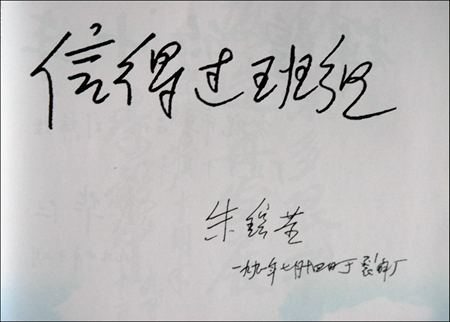 信得过班组
朱镕基
一九九一年七月十四日于裂解厂